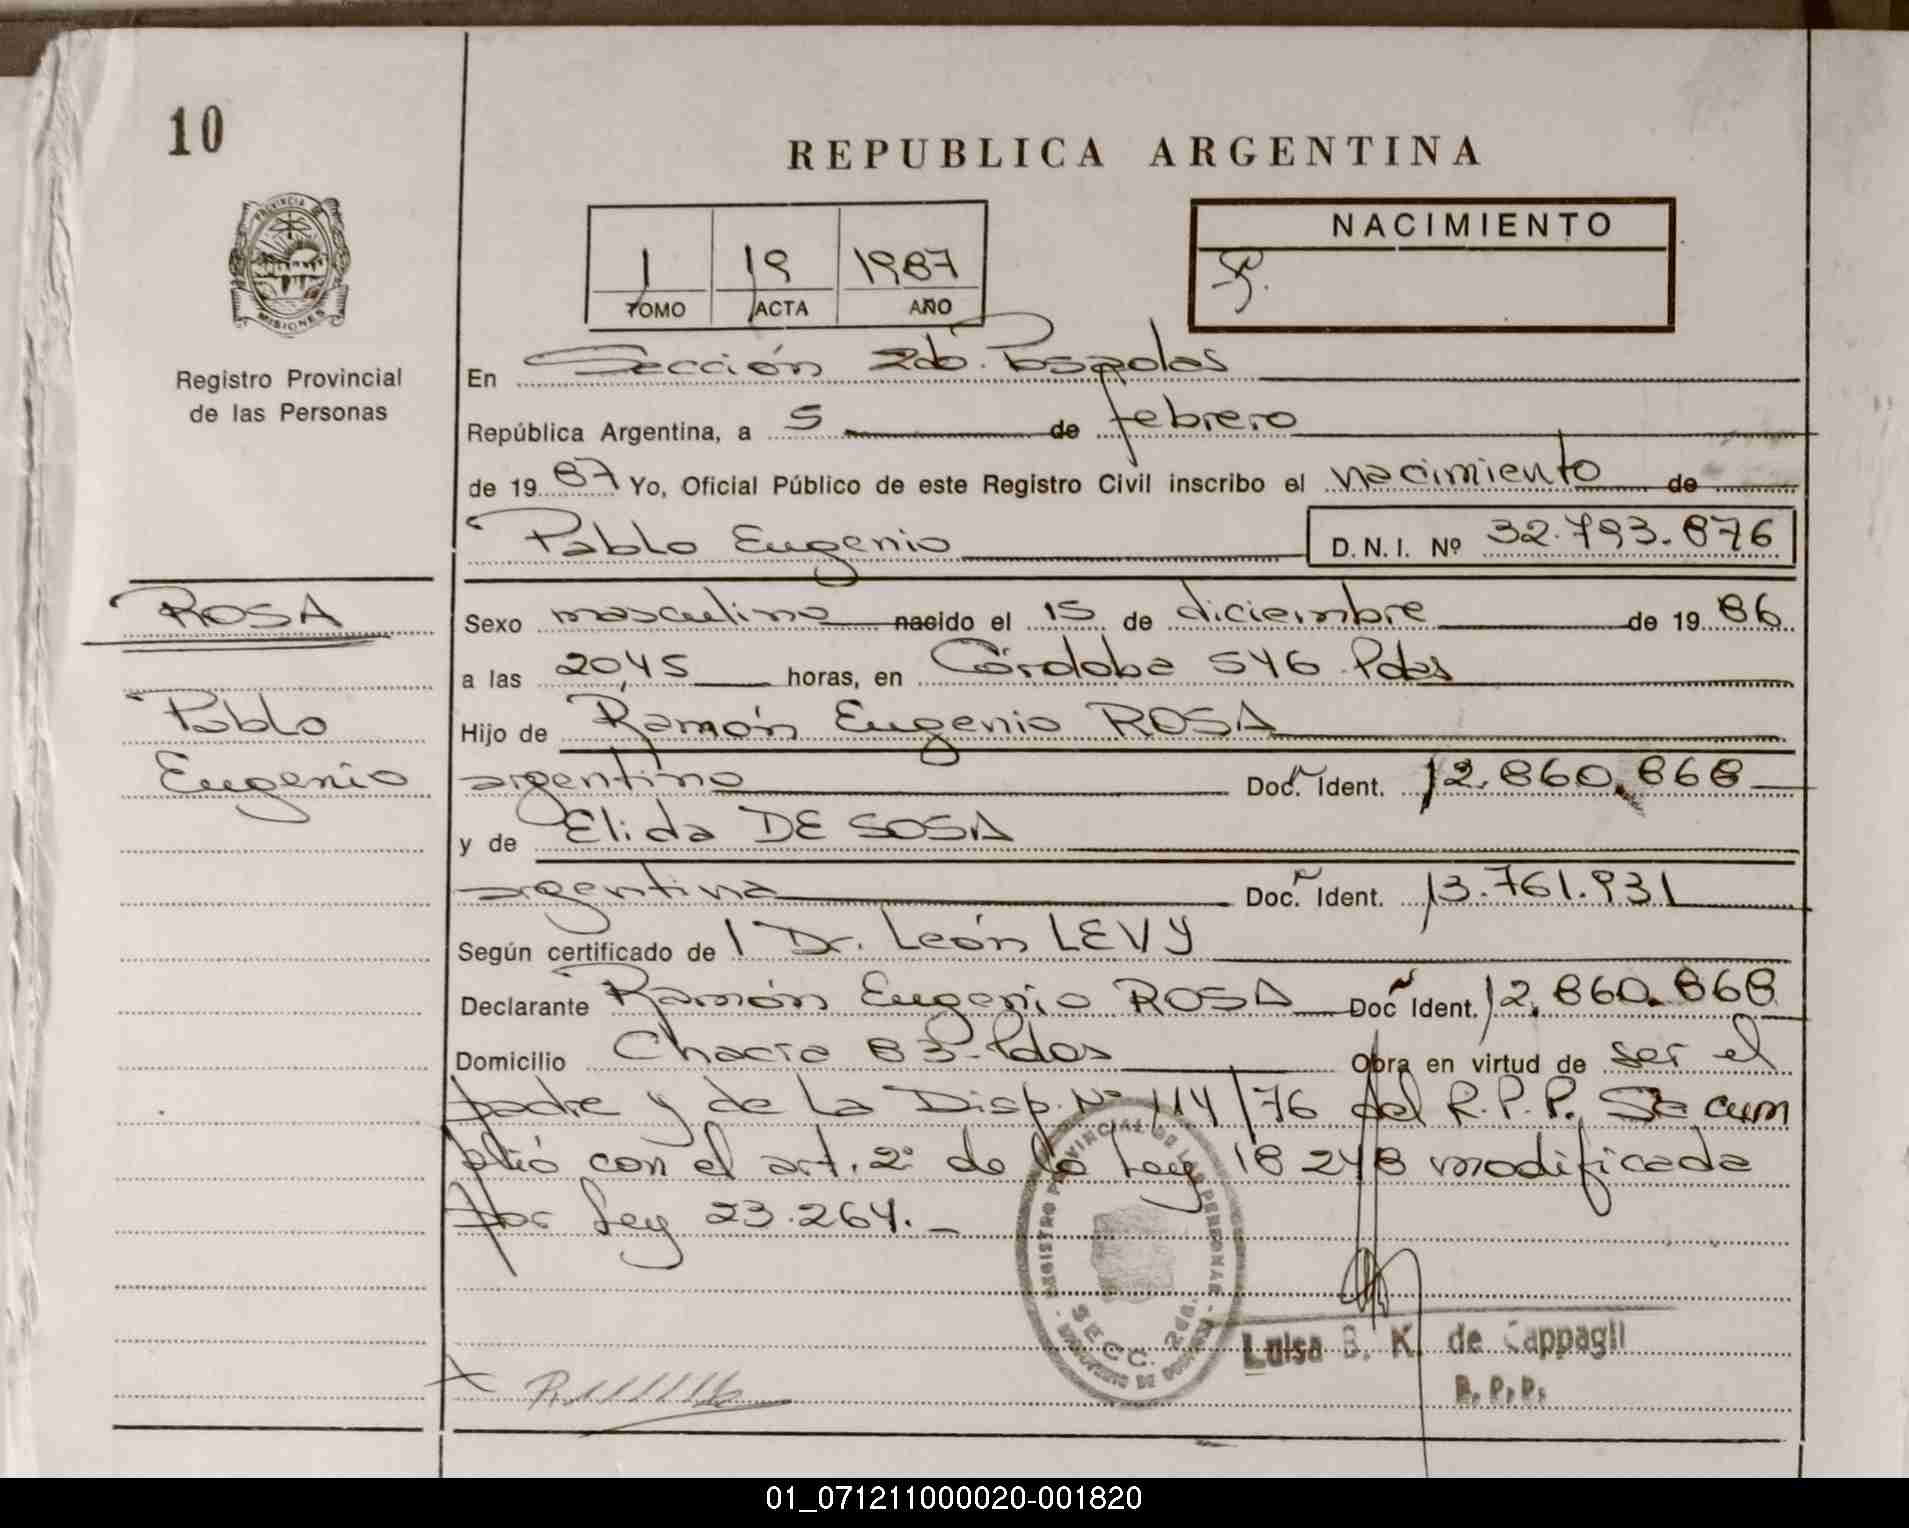 10
REPUBLICA ARGENTINA
PROVINCIA DE MISIONES
NACIMIENTO
1 19 1987
TOMO ACTA AÑO
Registro Provincial
de las Personas
En Sección 2da. Posadas
República Argentina, a 5 de febrero
de 1987 Yo, Oficial Público de este Registro Civil inscribo el nacimiento de
Pablo Eugenio D.N.I. Nº 32.793.876
ROSA
Pablo
Eugenio
Sexo masculino nacido el 15 de diciembre de 1986
a las 20,45 horas, en Córdoba 546 Pdas
Hijo de Ramón Eugenio ROSA
argentino Doc. Ident. 12.860.868
y de Elida DE SOSA
argentina Doc. Ident. 13.761.931
Según certificado de Dr. León LEVY
Declarante Ramón Eugenio ROSA Doc Ident. 12.860.868
Domicilio Chacra 83-Pdas Obra en virtud de ser el
padre y de la Disp. Nº 114/76 del R.P.P. Se cum
plió con el art. 2º de la Ley 18248 modificada
por Ley 23.264.-
REGISTRO PROVINCIAL DE LAS PERSONAS
SECC. 2da.
Luisa B. K. de Cappagli
R.P.P.
01_071211000020-001820